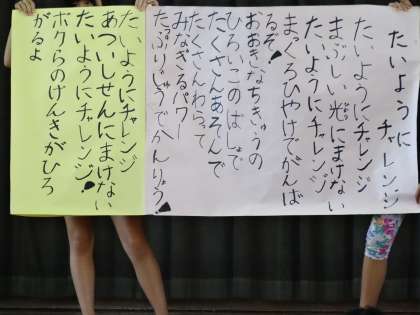 たいように
チャレンジ
たいようにチャレンジ
まぶしい光にまけない
たいようにチャレンジ
まっくろひやけでがんば
るぞ!
おおきなちきゅうの
ひろいこのばしょで
たくさんあそんで
たくさんわらって
みなぎるパワー
たっぷりじゅうでんかんりょう!
たいようにチャレンジ
あついしせんにまけない
たいようにチャレンジ!
ボクらのげんきがひろ
がるよ